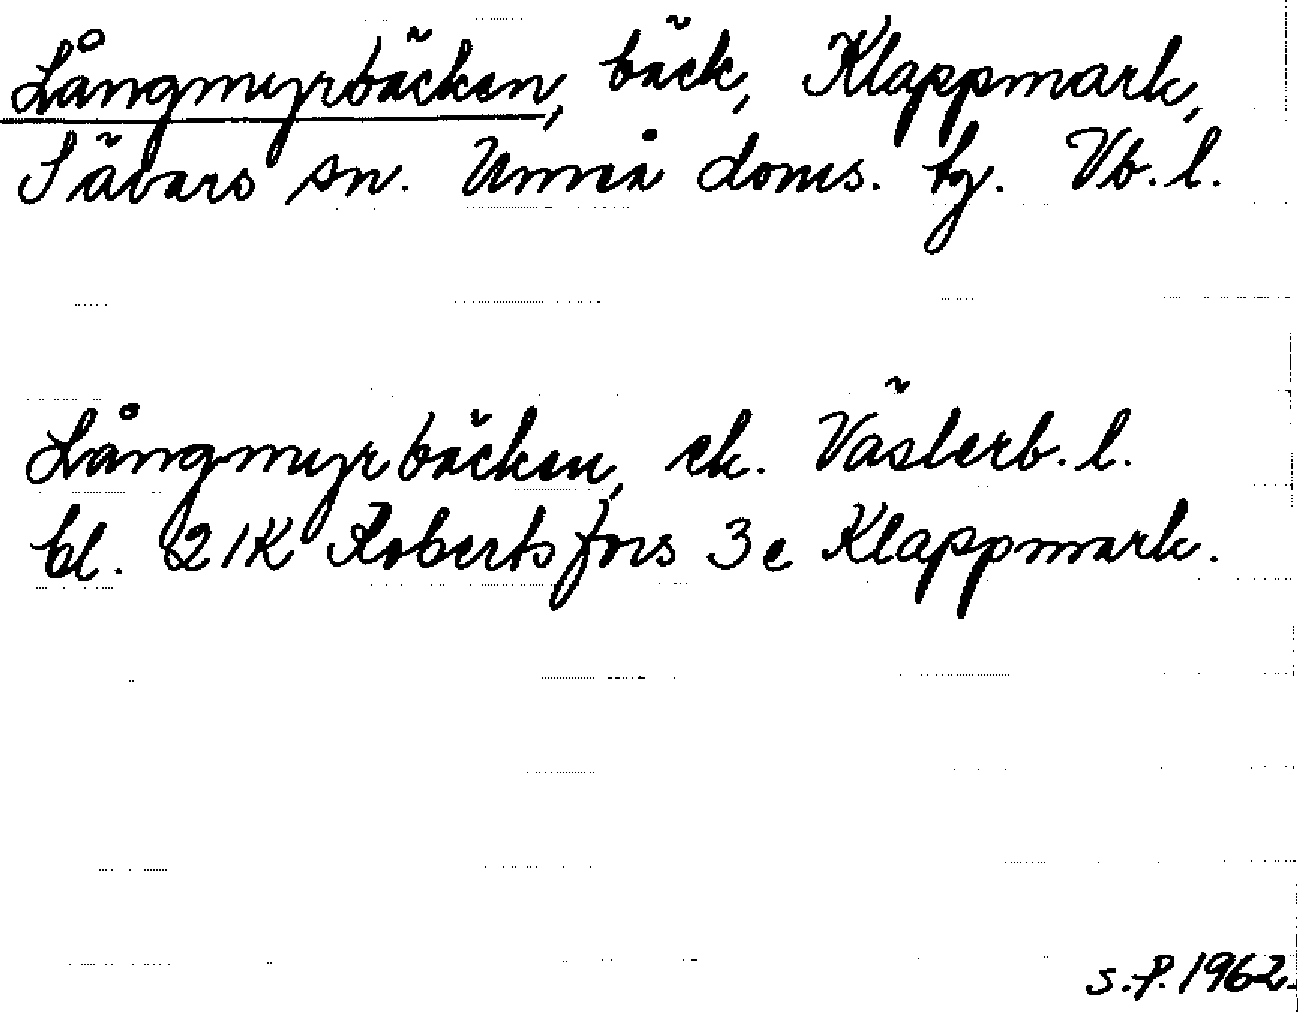 Långmyrbäcken, bäck, Klappmark,
Sävars sn. Umeå doms. tg. Vb.l.
Långmyrbäcken, ek. Västerb.l.
bl. 21K Robertsfors 3e Klappmark.
S.P. 1962.